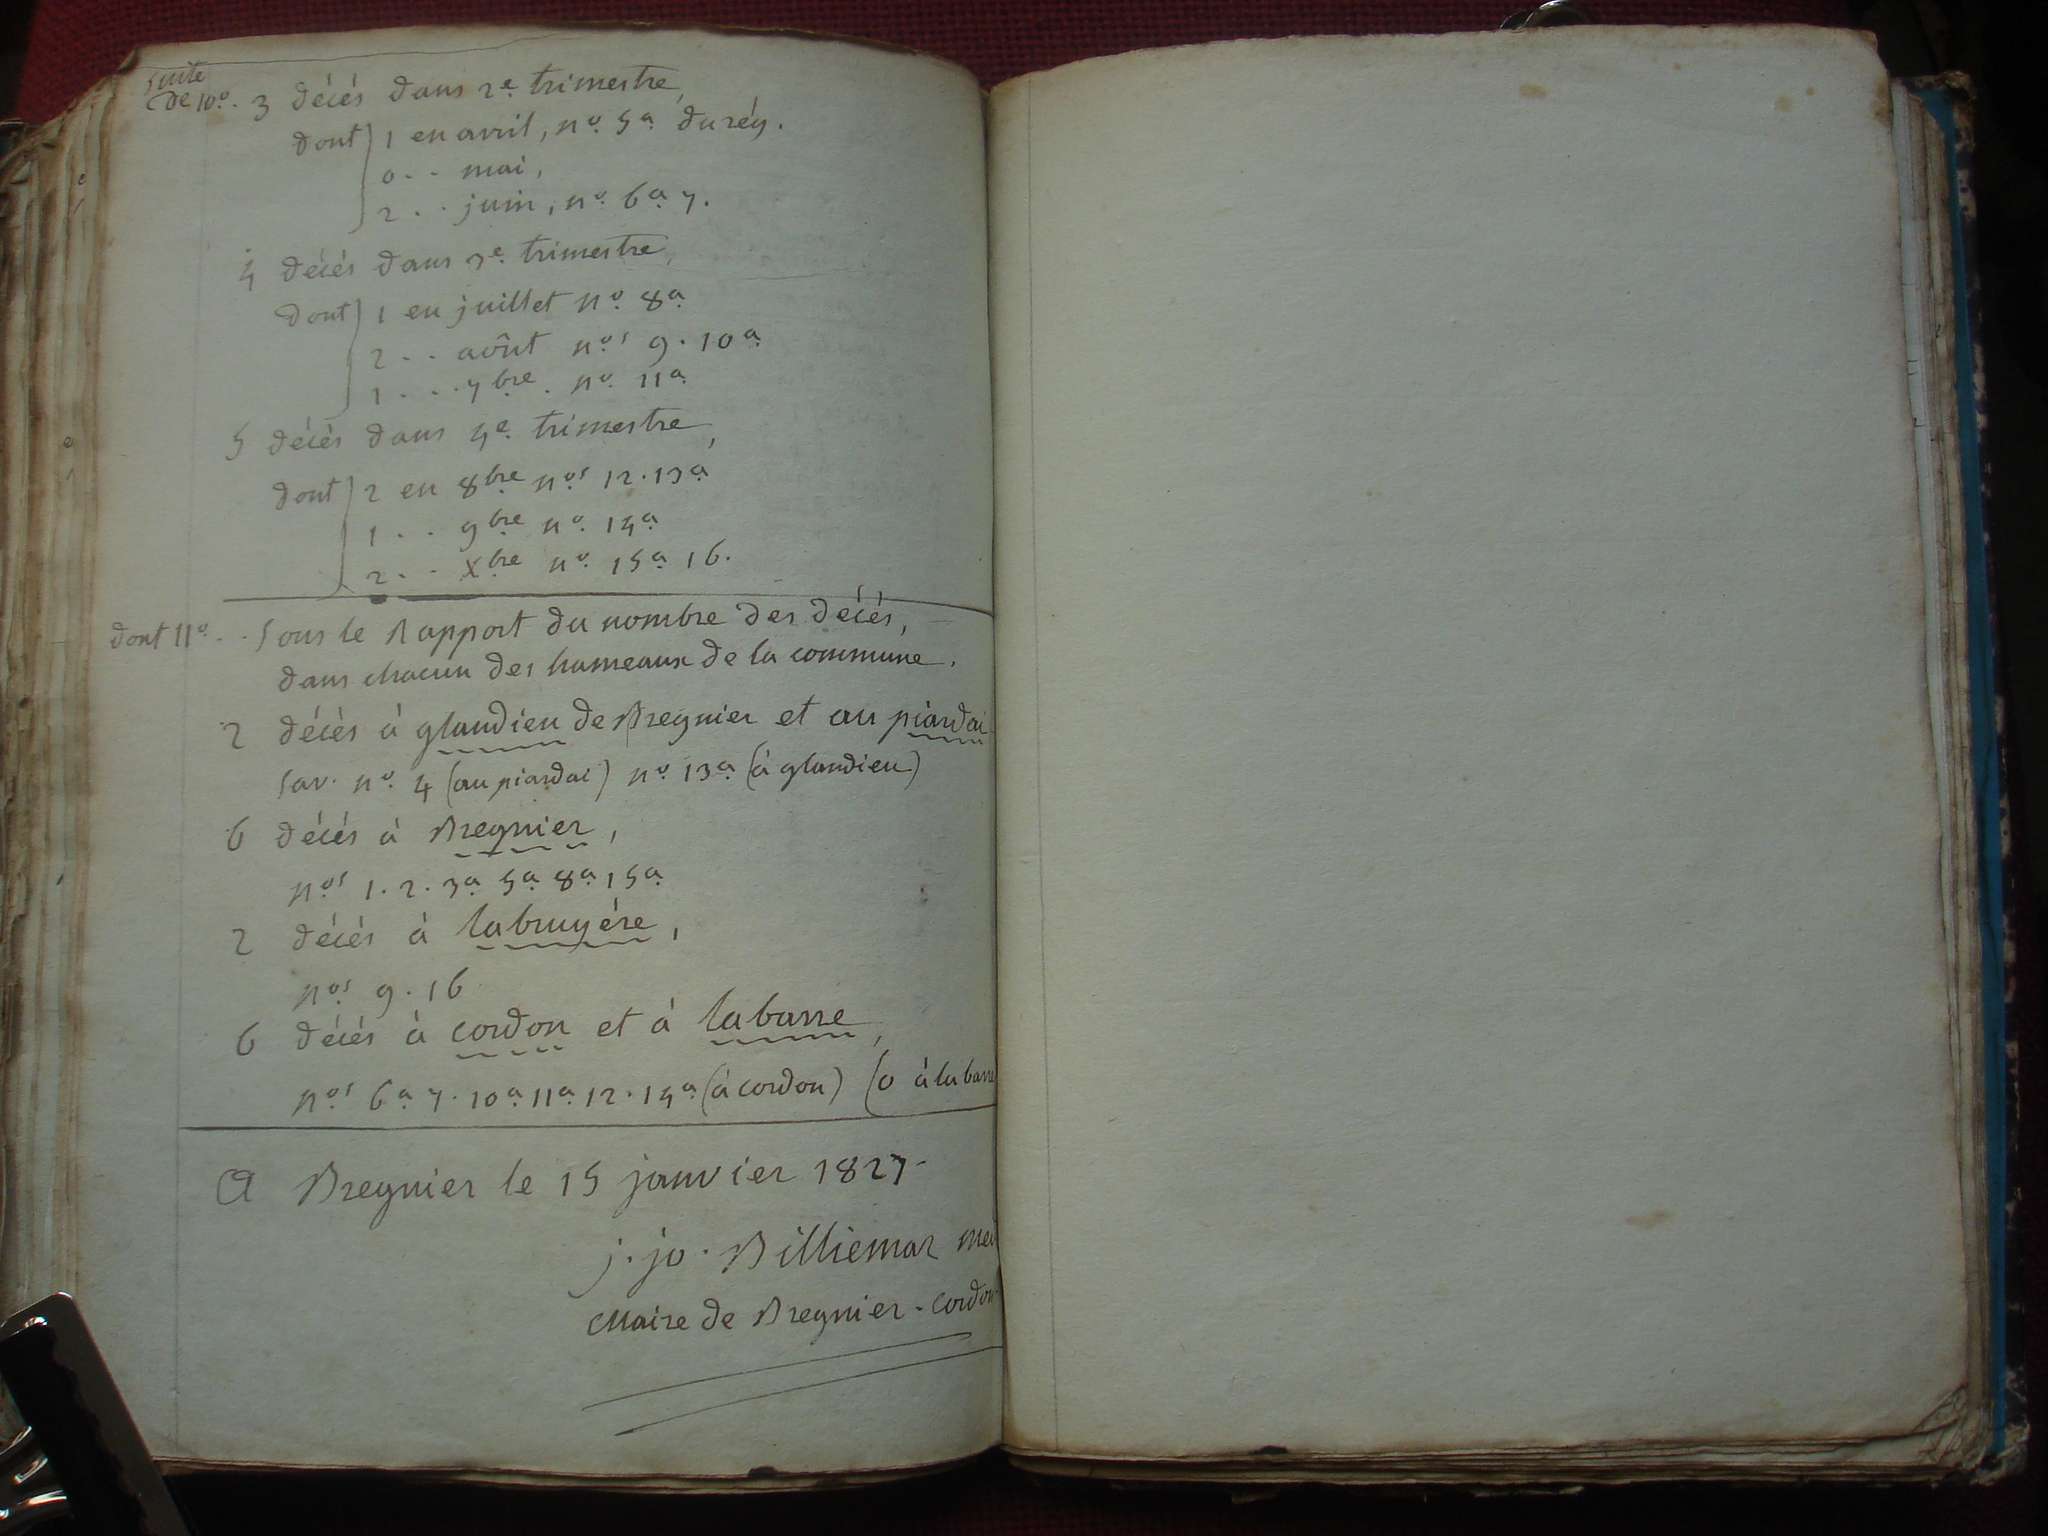 Suite
de 10º. 3 décés dans 2e trimestre,
dont 1 en avril, nº 5a du rég.
0 . . mai,
2 . . juin, nº 6a 7.
4 décés dans 3e trimestre,
dont 1 en juillet nº 8a
2 . . août nos 9 . 10a
1 . . . 7bre . nº 11a
5 décès dans 4e trimestre,
dont 2 en 8bre nos 12 . 13a
1 . . 9bre nº 14a
2 . . Xbre nº 15a 16.
dont 11º . . Sous le Rapport du nombre des décés,
dans chacun des hameaux de la commune.
2 décès à glandieu de Bregnier et au piardai
sav. nº 4 (au piardai) nº 13a (à glandieu)
6 décés à Bregnier,
nos 1 . 2 . 3a 5a 8a 15a
2 décés à labruyére,
nos 9 . 16
6 décés à cordon et à labarre,
nos 6a 7 . 10a 11a 12 . 14a (à cordon) (0 à labarre
A Bregnier le 15 janvier 1827-
j. jo. Billiemaz
Maire de Bregnier-cordon